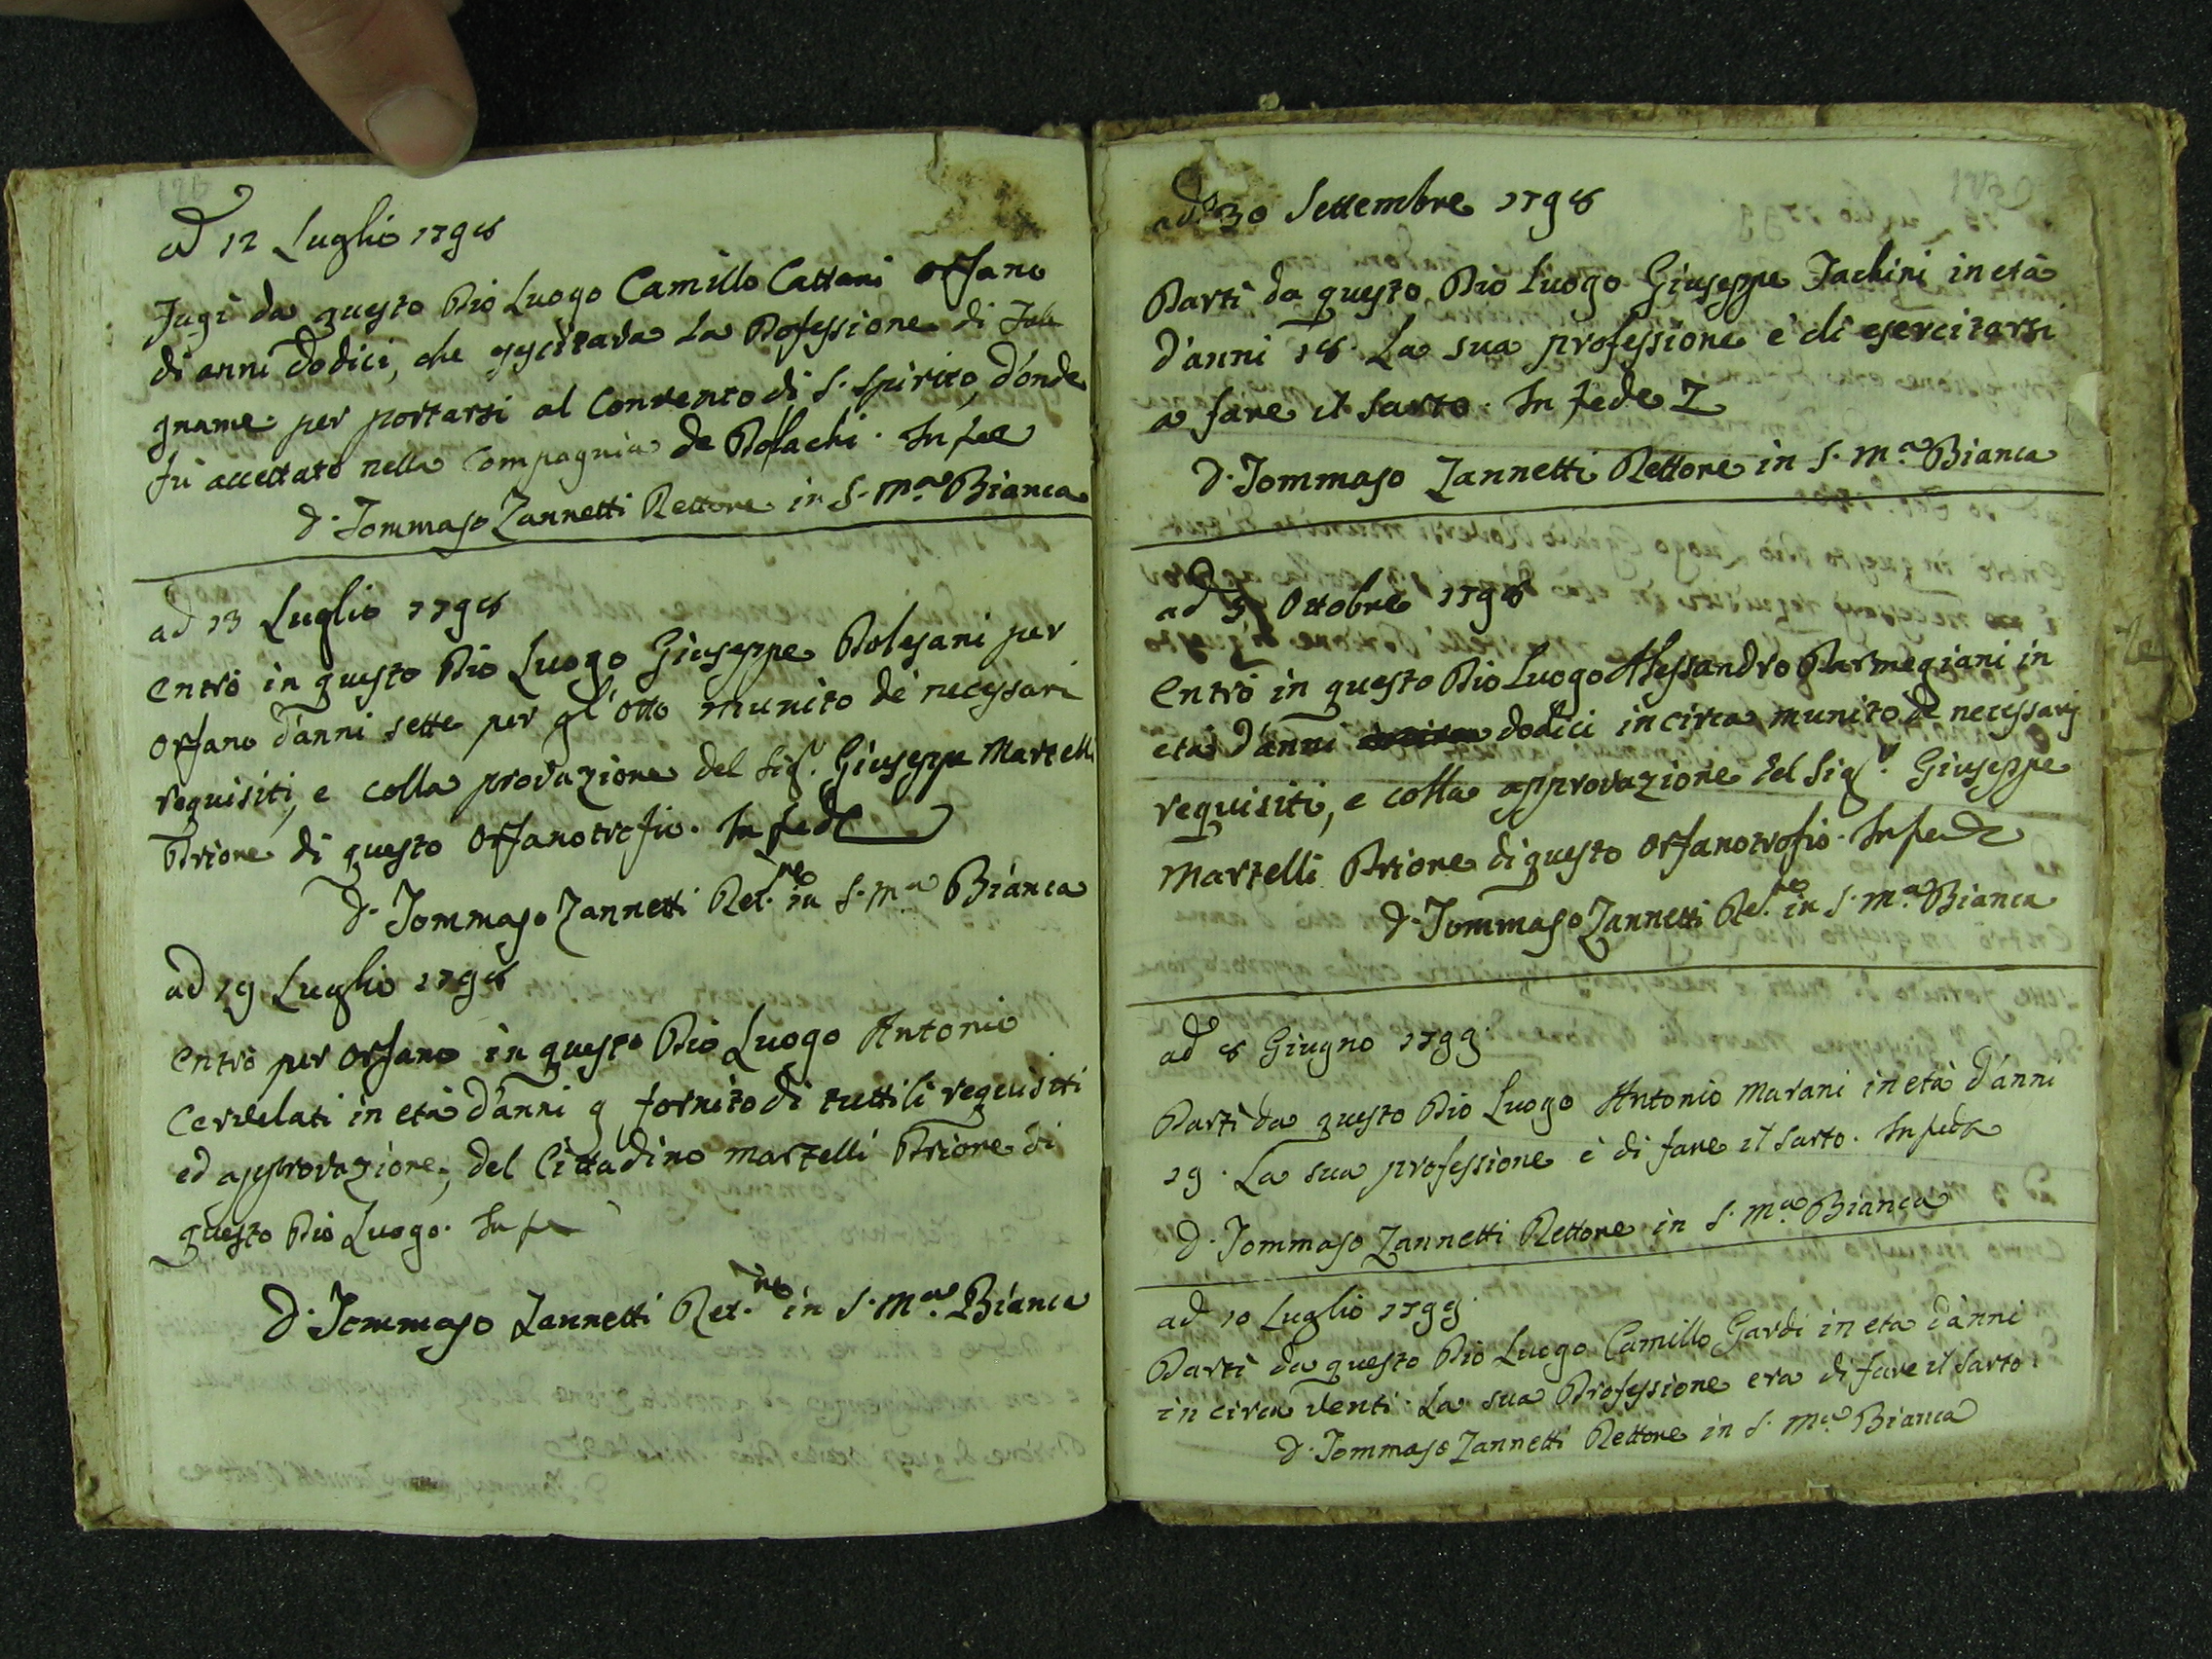 ad 12 Luglio 1798
Fugì da questo Pio Luogo Camillo Cattani orfano
di anni dodici, che esercitava la Professione di Fale
gname per portarsi al Convento di S. Spirito, d'onde
fù accettato nella Compagnia de Polachi. In fede
D. Tommaso Zannetti Rettore in S. Ma. Bianca
ad 13 Luglio 1798
Entrò in questo Pio Luogo Giuseppe Bolesani per
orfano d'anni sette per gl'otto munito de' necessari
requisiti, e colla provazione del Sigr. Giuseppe Martelli
Priore di questo Orfanotrofio. In fede
D. Tommaso Zannetti Ret.re in S. Ma Bianca
ad 19 Luglio 1798
Entrò per orfano in questo Pio Luogo Antonio
Cervelati in età d'anni 9 fornito di tutti li requisiti
ed approvazione, del Cittadino Martelli Priore di
questo Pio Luogo. In fe
D. Tommaso Zannetti Ret.re in S. Ma. Bianca
ad 30 Settembre 1798
Partì da questo Pio Luogo Giuseppe Iachini in età
d'anni 18. La sua professione è di esercitarsi
a fare il Sarto. In fede Z
D. Tommaso Zannetti Rettore in S. Ma. Bianca
ad Ottobre 1798
Entrò in questo Pio Luogo Alessandro Parmegiani in
età d'anni dodici in circa munito de necessarj
requisiti, e colla approvazione del Sigr. Giuseppe
Martelli Priore di questo Orfanotrofio. In fede
D. Tommaso Zannetti Ret.re in S. Ma. Bianca
ad 8 Giugno 1799.
Partì da questo Pio Luogo Antonio Marani in età d'anni
19. La sua professione è di fare il Sarto. In fede
D. Tommaso Zannetti Rettore in S. Ma. Bianca
ad 10 Luglio 1799.
Partì da questo Pio Luogo Camillo Gardi in età d'anni
in circa venti. La sua Professione era di fare il Sarto.
D. Tommaso Zannetti Rettore in S. Ma. Bianca